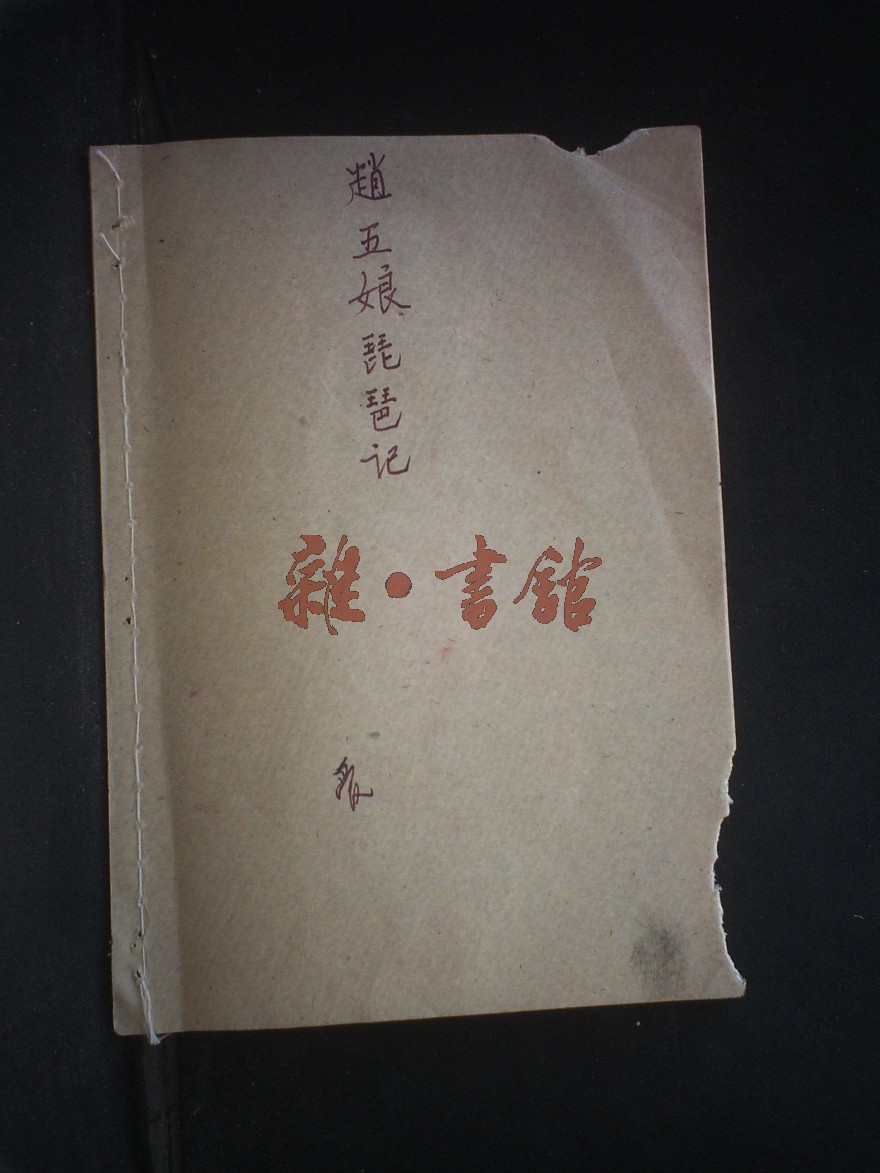 趙五娘琵琶记
雜·書館